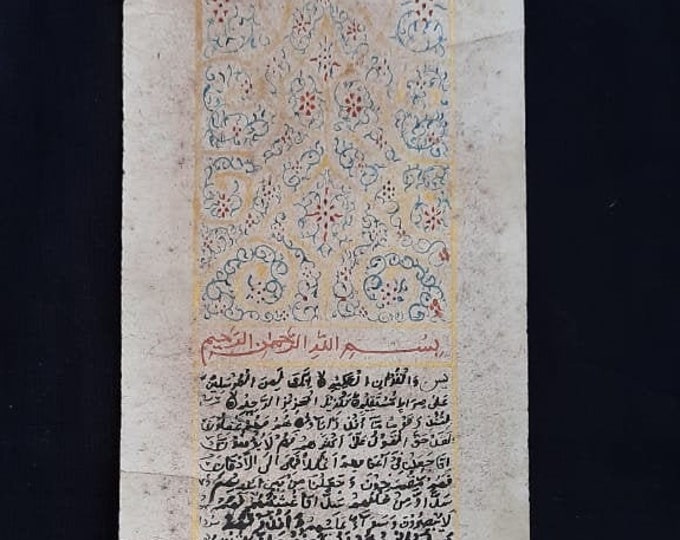 بسم الله الرحمن الرحيم
يس والقران الحكيم انك لمن المرسلين
على صراط مستقيم تنزيل العزيز الرحيم
لتنذر قوما ما انذر اباؤهم فهم غفلون
لقد حق القول على اكثرهم فهم لا يؤمنون
انا جعلنا في اعناقهم اغللا فهي الى الاذقان
فهم مقمحون وجعلنا من بين ايديهم
سدا ومن خلفهم سدا فاغشينهم فهم
لا يبصرون وسواء عليهم ءانذرتهم